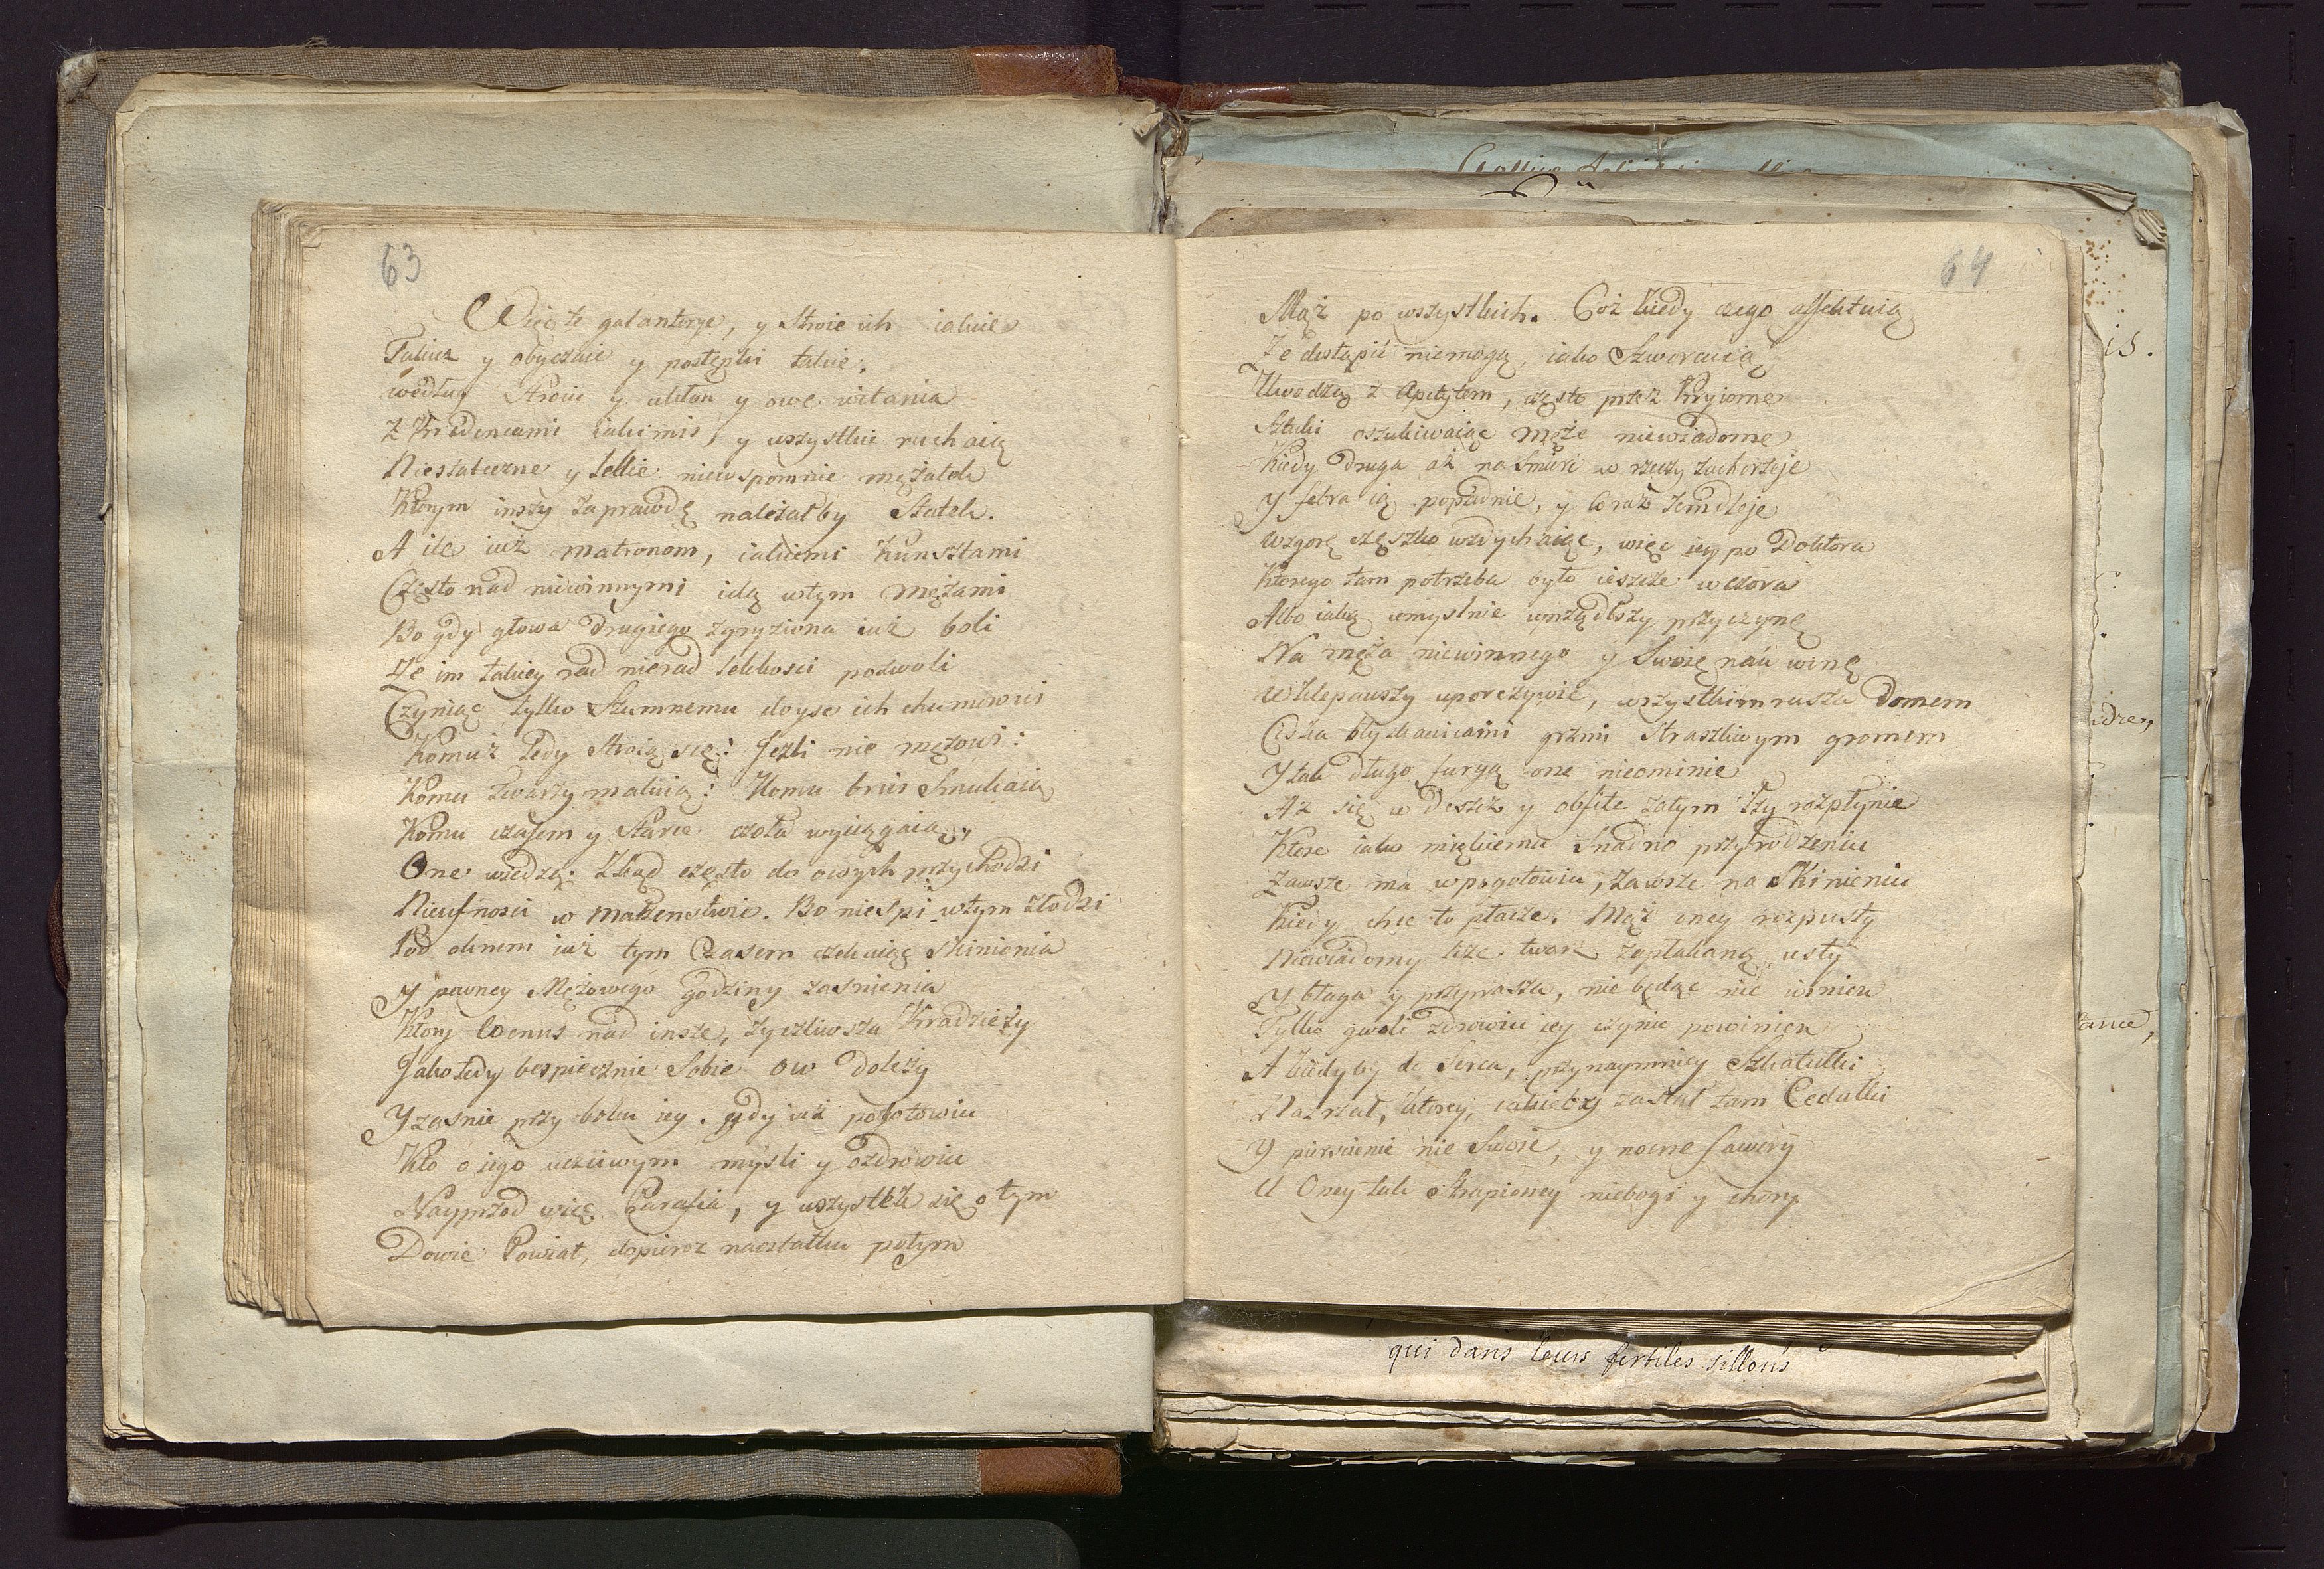 63
Więc te galanterye, y Stroie ich iakie
Takież y obyczaie y postęmpki takie.
według Stroiu y ukłon y owe witania
Z Kredencami iakimis, y wszystkie ruchaią
Niestateczne y lekkie niewspomnie mężatek
Ktorym inszy zaprawdę należałby Statek.
A ile iuż matronom, iakiemi kunsztami
Często nad niewinnymi idą wtym mężami
Bo gdy głowa drugiego zgryziona iuż boli
Że im takiey rad nierad lekkosci pozwoli
Czyniąc tylko Szumnemu doyse ich humorowi
Komuż tedy Stroią się: Jezli nie mężowi:
Komu twarzy maluią: Komu brwi Smukaią
Komu czasem y Stare czoła wyciągaią,
One wiedzą. Zkąd często do owych przychodzi
Nieufnosci w małzenstwie. Bo nieśpi wtym złodzi
Pod oknem iuż tym Czasem czekaiąc skinienia
Y pewney Mężowego godziny zasnienia
Ktory Wenus nad insze, życzliwsza Kradzieży
Jako tedy bespiecznie Sobie ow doleży
Y zasnie przy boku iey. gdy iuż pogotowiu
Kto o iego uczciwym mysli y ozdrowiu
Nayprzod więc Parafia, y wszystek się o tym
Dowie Powiat, dopieroz naostatku potym
64
Mąż po wszystkich. Coż kiedy czego affektuią
Że dostąpić niemogą, iako Sztworcuią
Uwodzą z Apetytem, często przez Kryiome
Sztuki oszukiwaiąc męże niewiadome
Kiedy druga aż na śmierć w rzeczy zachorzeje
Y febra ią popadnie, y wraz zemdleje
Wzgorę częszko wzdychaiąc, więc iey po Doktora
Ktorego tam potrzeba było ieszcze wczora
Albo iaką umyslnie uprządszy przyczynę
Na męża niewinnego y Swoię nań winę
Wklepauszy uporczywie, wszystkim rusza Domem
Ciska błyskawicami grzmi Straszliwym gromem
Y tak długo furyą one nieominie
Aż się w Deszcz y obfite zatym łzy rozpłynie
Ktore iako miękiemu Snadno przyrodzeniu
Zawsze ma wpogotowiu, zawsze na Skinieniu
Kiedy chce to płacze. Mąż oney rozpusty
Niewiadomy liże twarz zapłakaną usty
Y błaga y przeprasza, nie będąc nic winien
Tylko gwoli zdrowiu iey czynic powinien
A kiedyby do Serca, przynaymniey Szkatułki
Nazrzał, ktorey, iakieby zastał tam Cedułki
Y pierscienie nie Swoie, y nocne fawory
U Oney tak Strapioney niebogi y chory
qui dans leurs fertiles sillons
is.